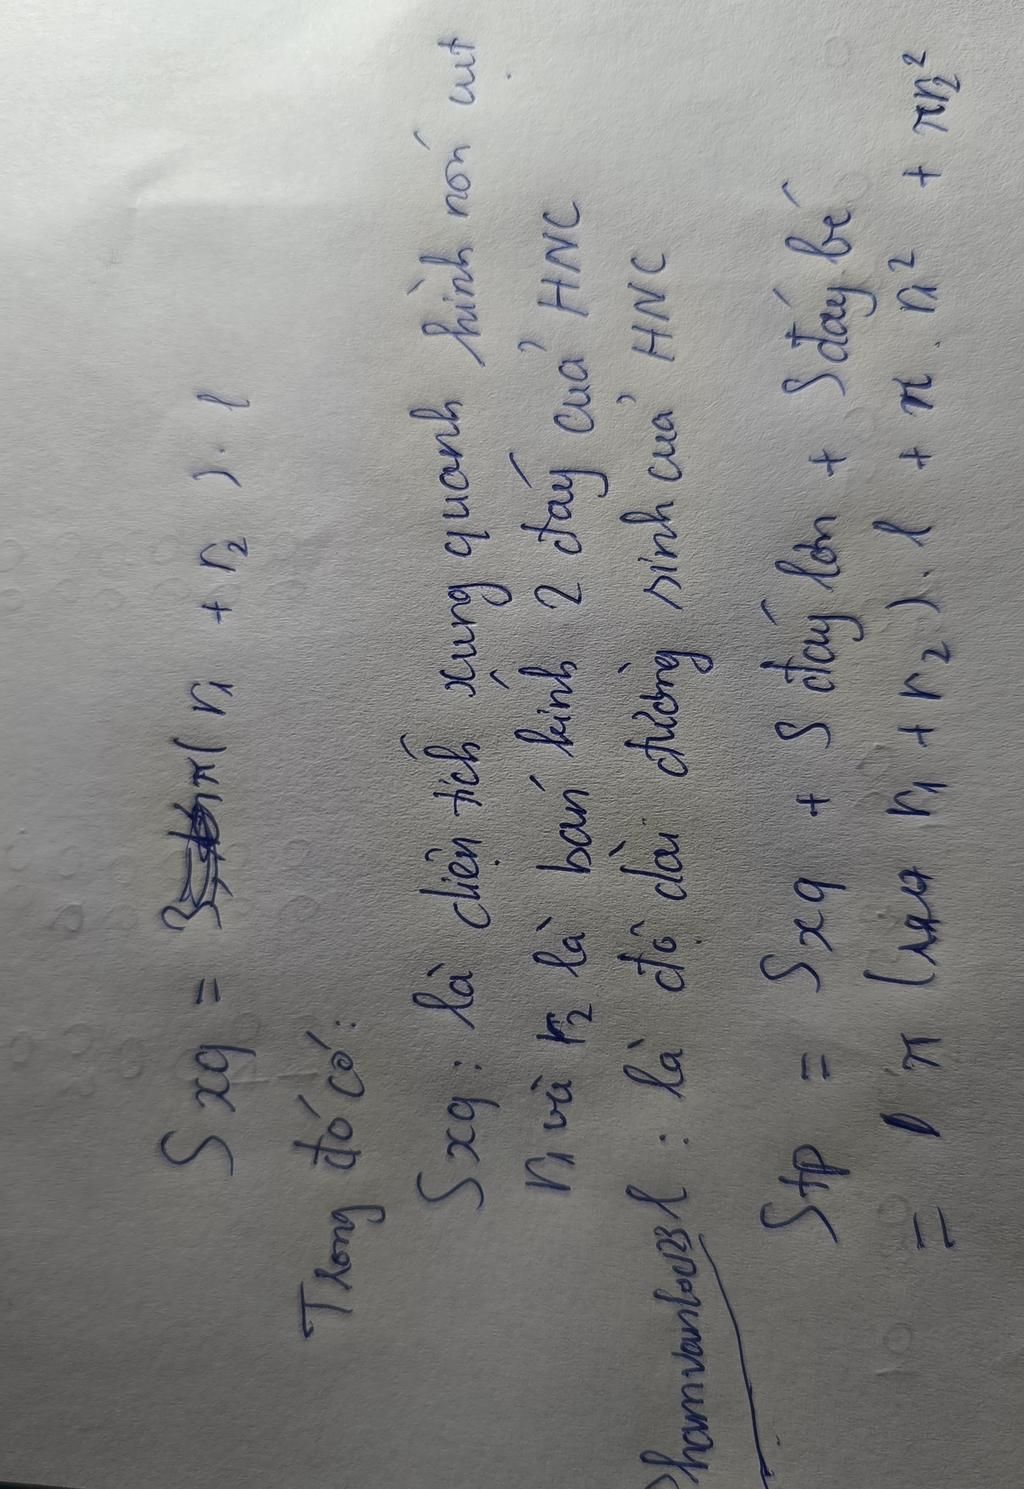 Sxq = π( r₁ + r₂ ). l
Trong đó có:
Sxq: là diện tích xung quanh hình nón cụt
r₁ và r₂ là bán kính 2 đáy của HNC
l : là độ dài đường sinh của HNC
Phamvanloc123
Stp = Sxq + S đáy lớn + S đáy bé
= π ( r₁ + r₂ ). l + π . r₁² + πr₂²